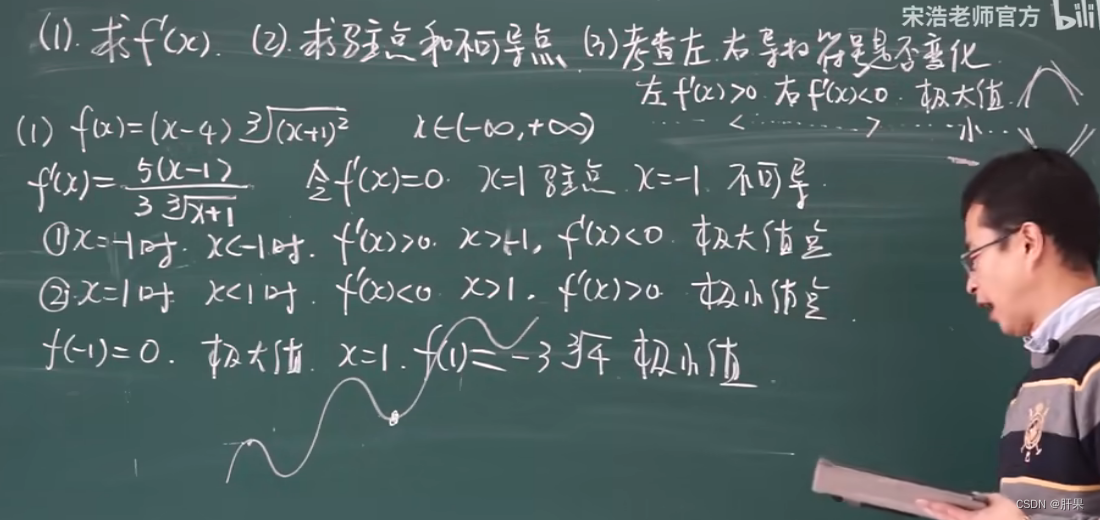 宋浩老师官方 bili
(1). 求f'(x). (2). 求驻点和不可导点 (3) 考查左.右导的符号是否变化
左 f'(x)>0. 右 f'(x)<0. 极大值.
..... < ...... > ...... 小...
(1) f(x)=(x-4)∛(x+1)² x∈(-∞,+∞)
f'(x)=5(x-1)/3∛x+1 令f'(x)=0. x=1 驻点. x=-1. 不可导.
①x=-1时. x<-1时. f'(x)>0. x>-1, f'(x)<0. 极大值点
②x=1时 x<1时. f'(x)<0 x>1, f'(x)>0 极小值点.
f(-1)=0. 极大值. x=1. f(1)=-3∛4 极小值.
CSDN @肝果